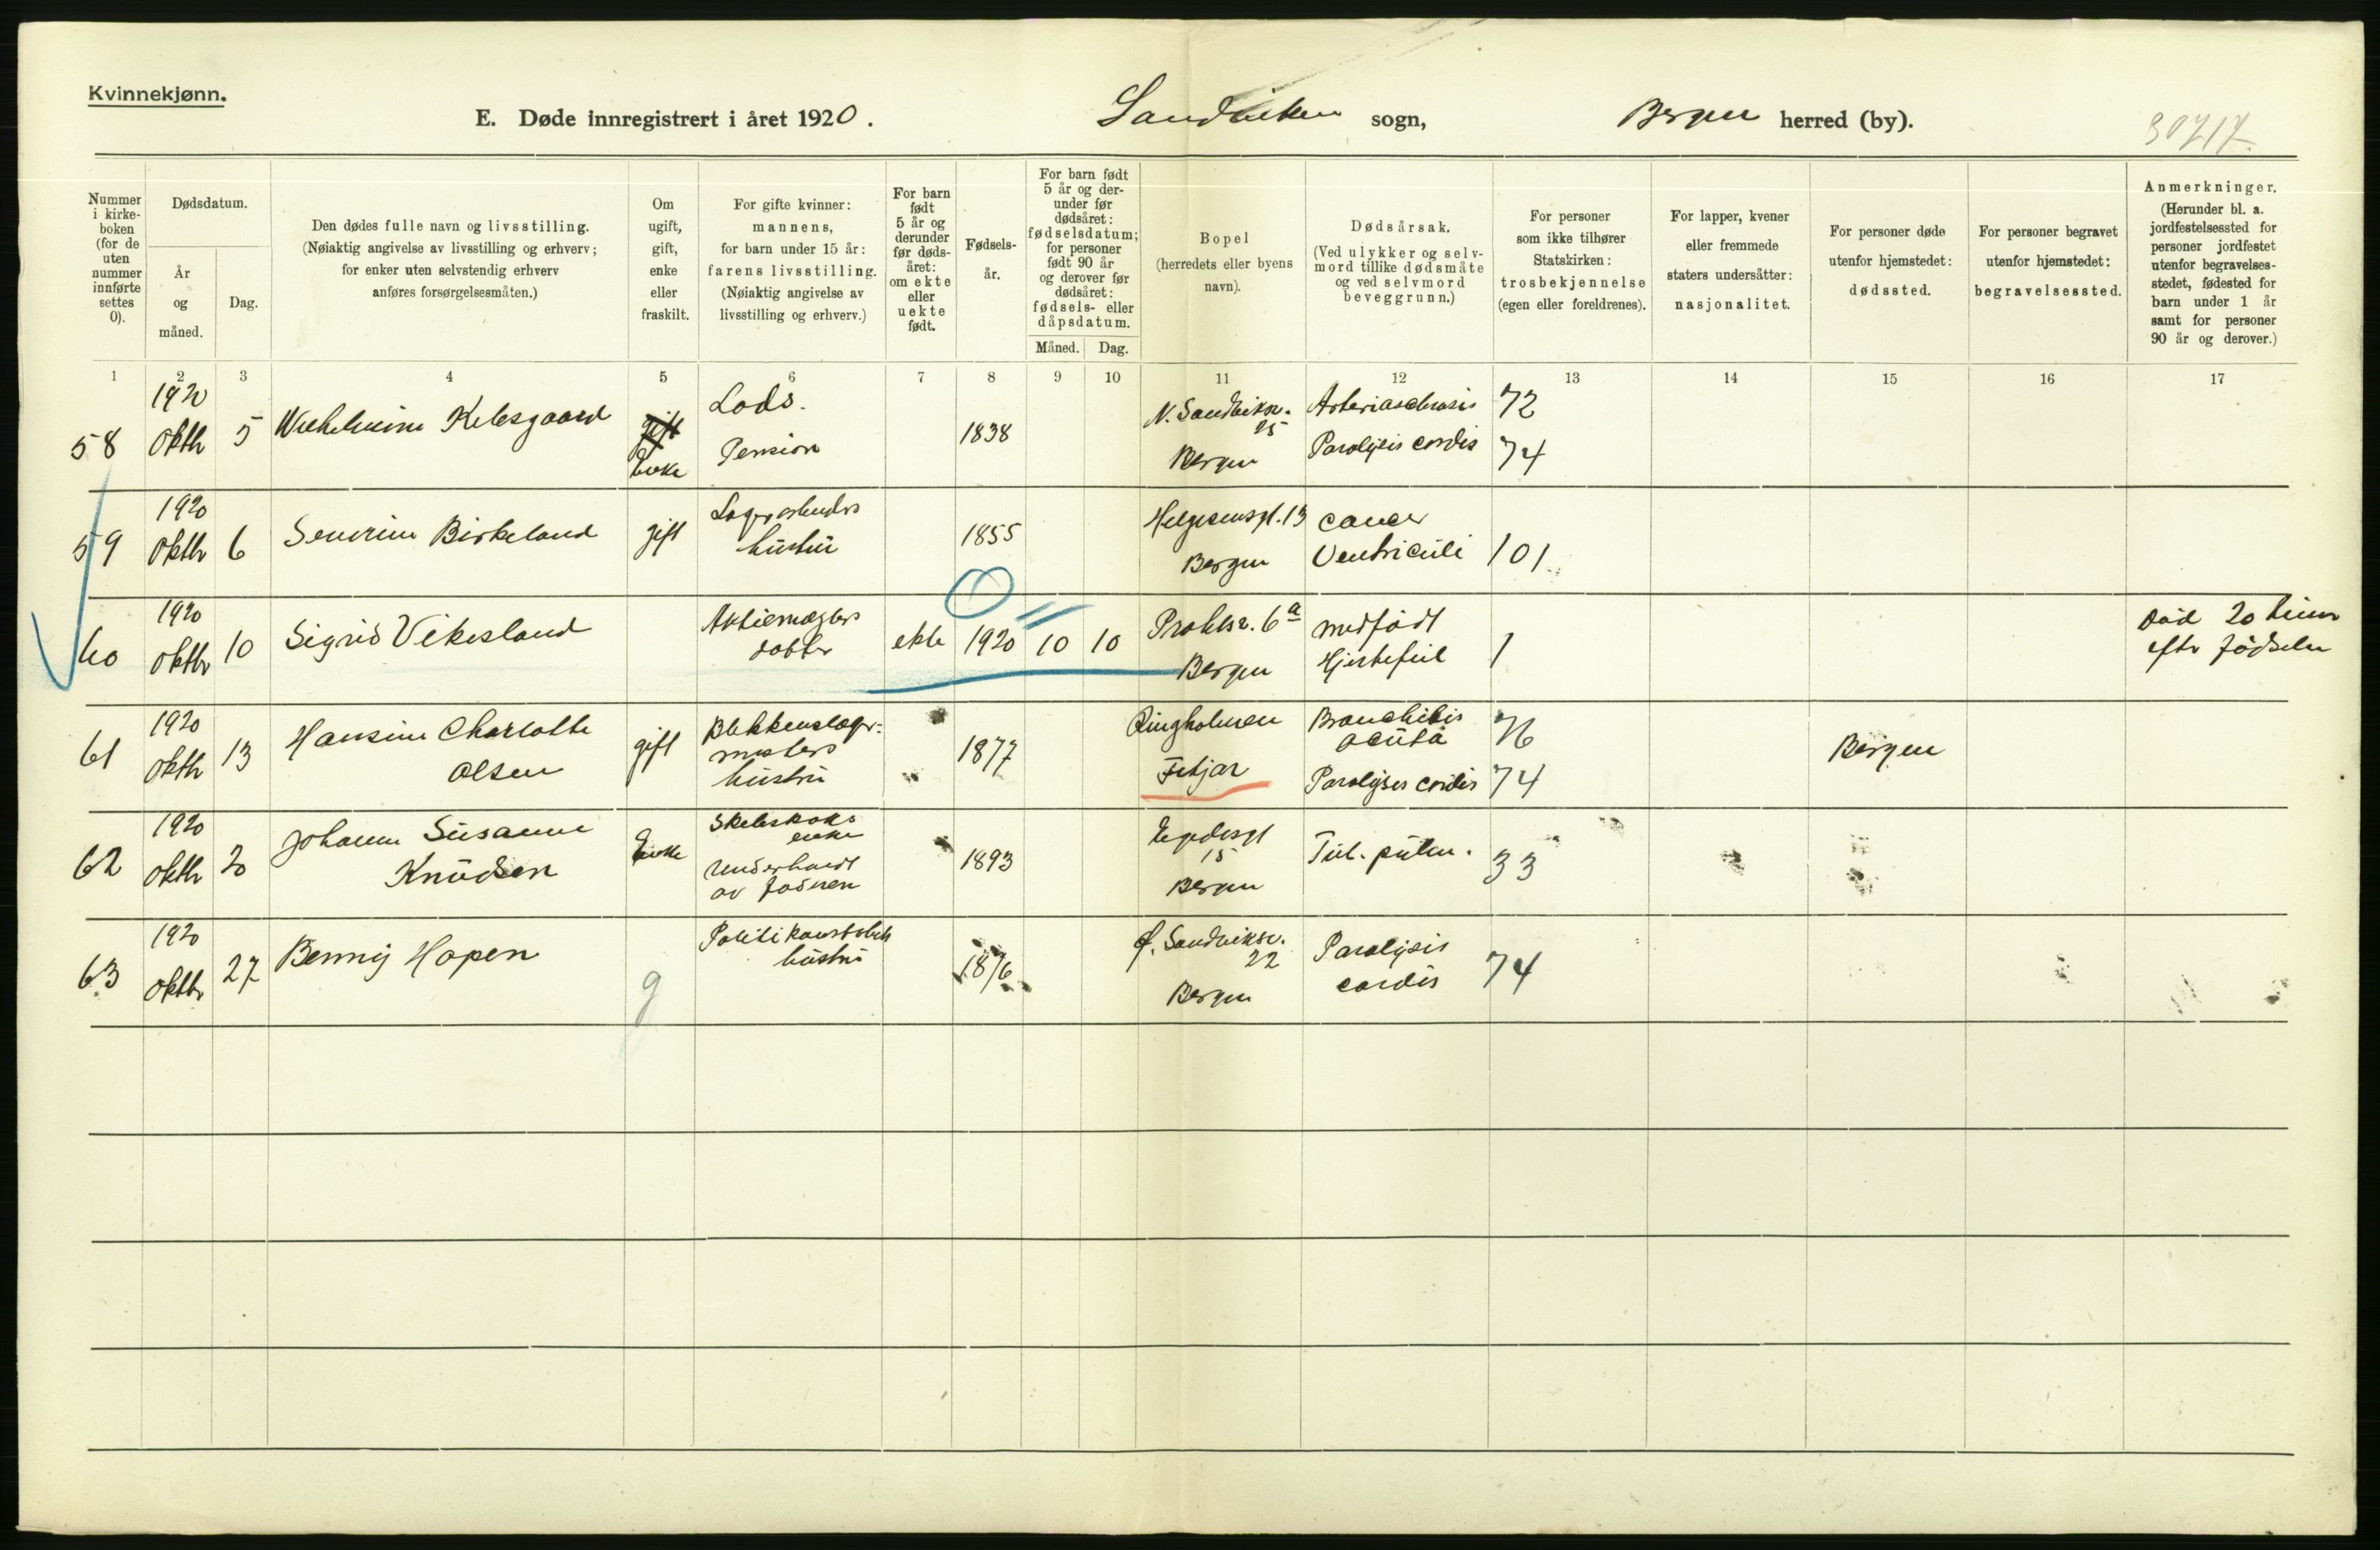 Kvinnekjønn.
E. Døde innregistrert i året 1920. Sandviken sogn, Bergen herred (by).
Nummer i kirke- boken (for de uten nummer innførte settes 0).
Dødsdatum.
År og måned.
Dag.
Den dødes fulle navn og livsstilling.
(Nøiaktig angivelse av livsstilling og erhverv;
for enker uten selvstendig erhverv
anføres forsørgelsesmåten.)
Om ugift, gift, enke eller fraskilt.
For gifte kvinner:
mannens,
for barn under 15 år:
farens livsstilling.
(Nøiaktig angivelse av
livsstilling og erhverv.)
For barn født 5 år og derunder før døds- året: om ekte eller uekte født.
Fødsels- år.
For barn født
5 år og der-
under før
dødsåret:
fødselsdatum;
for personer
født 90 år
og derover før
dødsåret:
fødsels- eller
dåpsdatum.
Måned. Dag.
Bopel
(herredets eller byens
navn).
Dødsårsak.
(Ved ulykker og selv-
mord tillike dødsmåte
og ved selvmord
beveggrunn.)
For personer
som ikke tilhører
Statskirken:
trosbekjennelse
(egen eller foreldrenes).
For lapper, kvener
eller fremmede
staters undersåtter:
nasjonalitet.
For personer døde
utenfor hjemstedet:
dødssted.
For personer begravet
utenfor hjemstedet:
begravelsessted.
Anmerkninger.
(Herunder bl. a.
jordfestelsessted for
personer jordfestet
utenfor begravelses-
stedet, fødested for
barn under 1 år
samt for personer
90 år og derover.)
1 2 3 4 5 6 7 8 9 10 11 12 13 14 15 16 17
58 1920 Oktbr 5 gift Enke Lods. Pension 1838 N. Sandviksv. 25 Bergen Paralysis cordis 72 74
59 1920 Oktbr 6 Birkeland gift hustru 1855 Helgesensgt. 13 Bergen cancer Ventriculi 101
60 1920 Oktbr 10 Sigrid Vikesland Aktiemæglers datter ekte 1920 10 10 6a Bergen medfødt Hjertefeil 1 Død 20 timer eftr fødselen
61 1920 Oktbr 13 Hansine Charlotte Olsen gift Blikkenslager- mesters hustru 1877 Ringholmen Fitjar Bronchitis acuta Paralysis cordis 76 74 Bergen
62 1920 Oktbr 20 Johanne Susanne Knudsen Enke enke underholdt av 1893 15 Bergen Tub. pulm. 33
63 1920 Oktbr 27 Hopen g Politikonstabels hustru 1876 Sandviksv. 22 Bergen Paralysis cordis 74